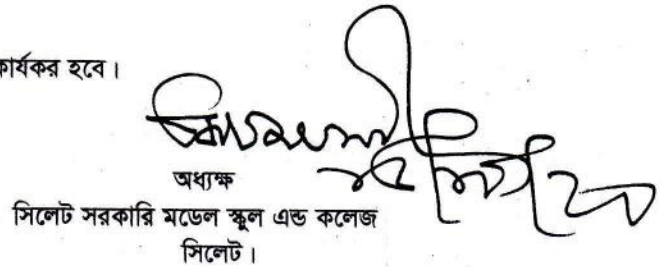 কার্যকর হবে।
অধ্যক্ষ
সিলেট সরকারি মডেল স্কুল এন্ড কলেজ
সিলেট।